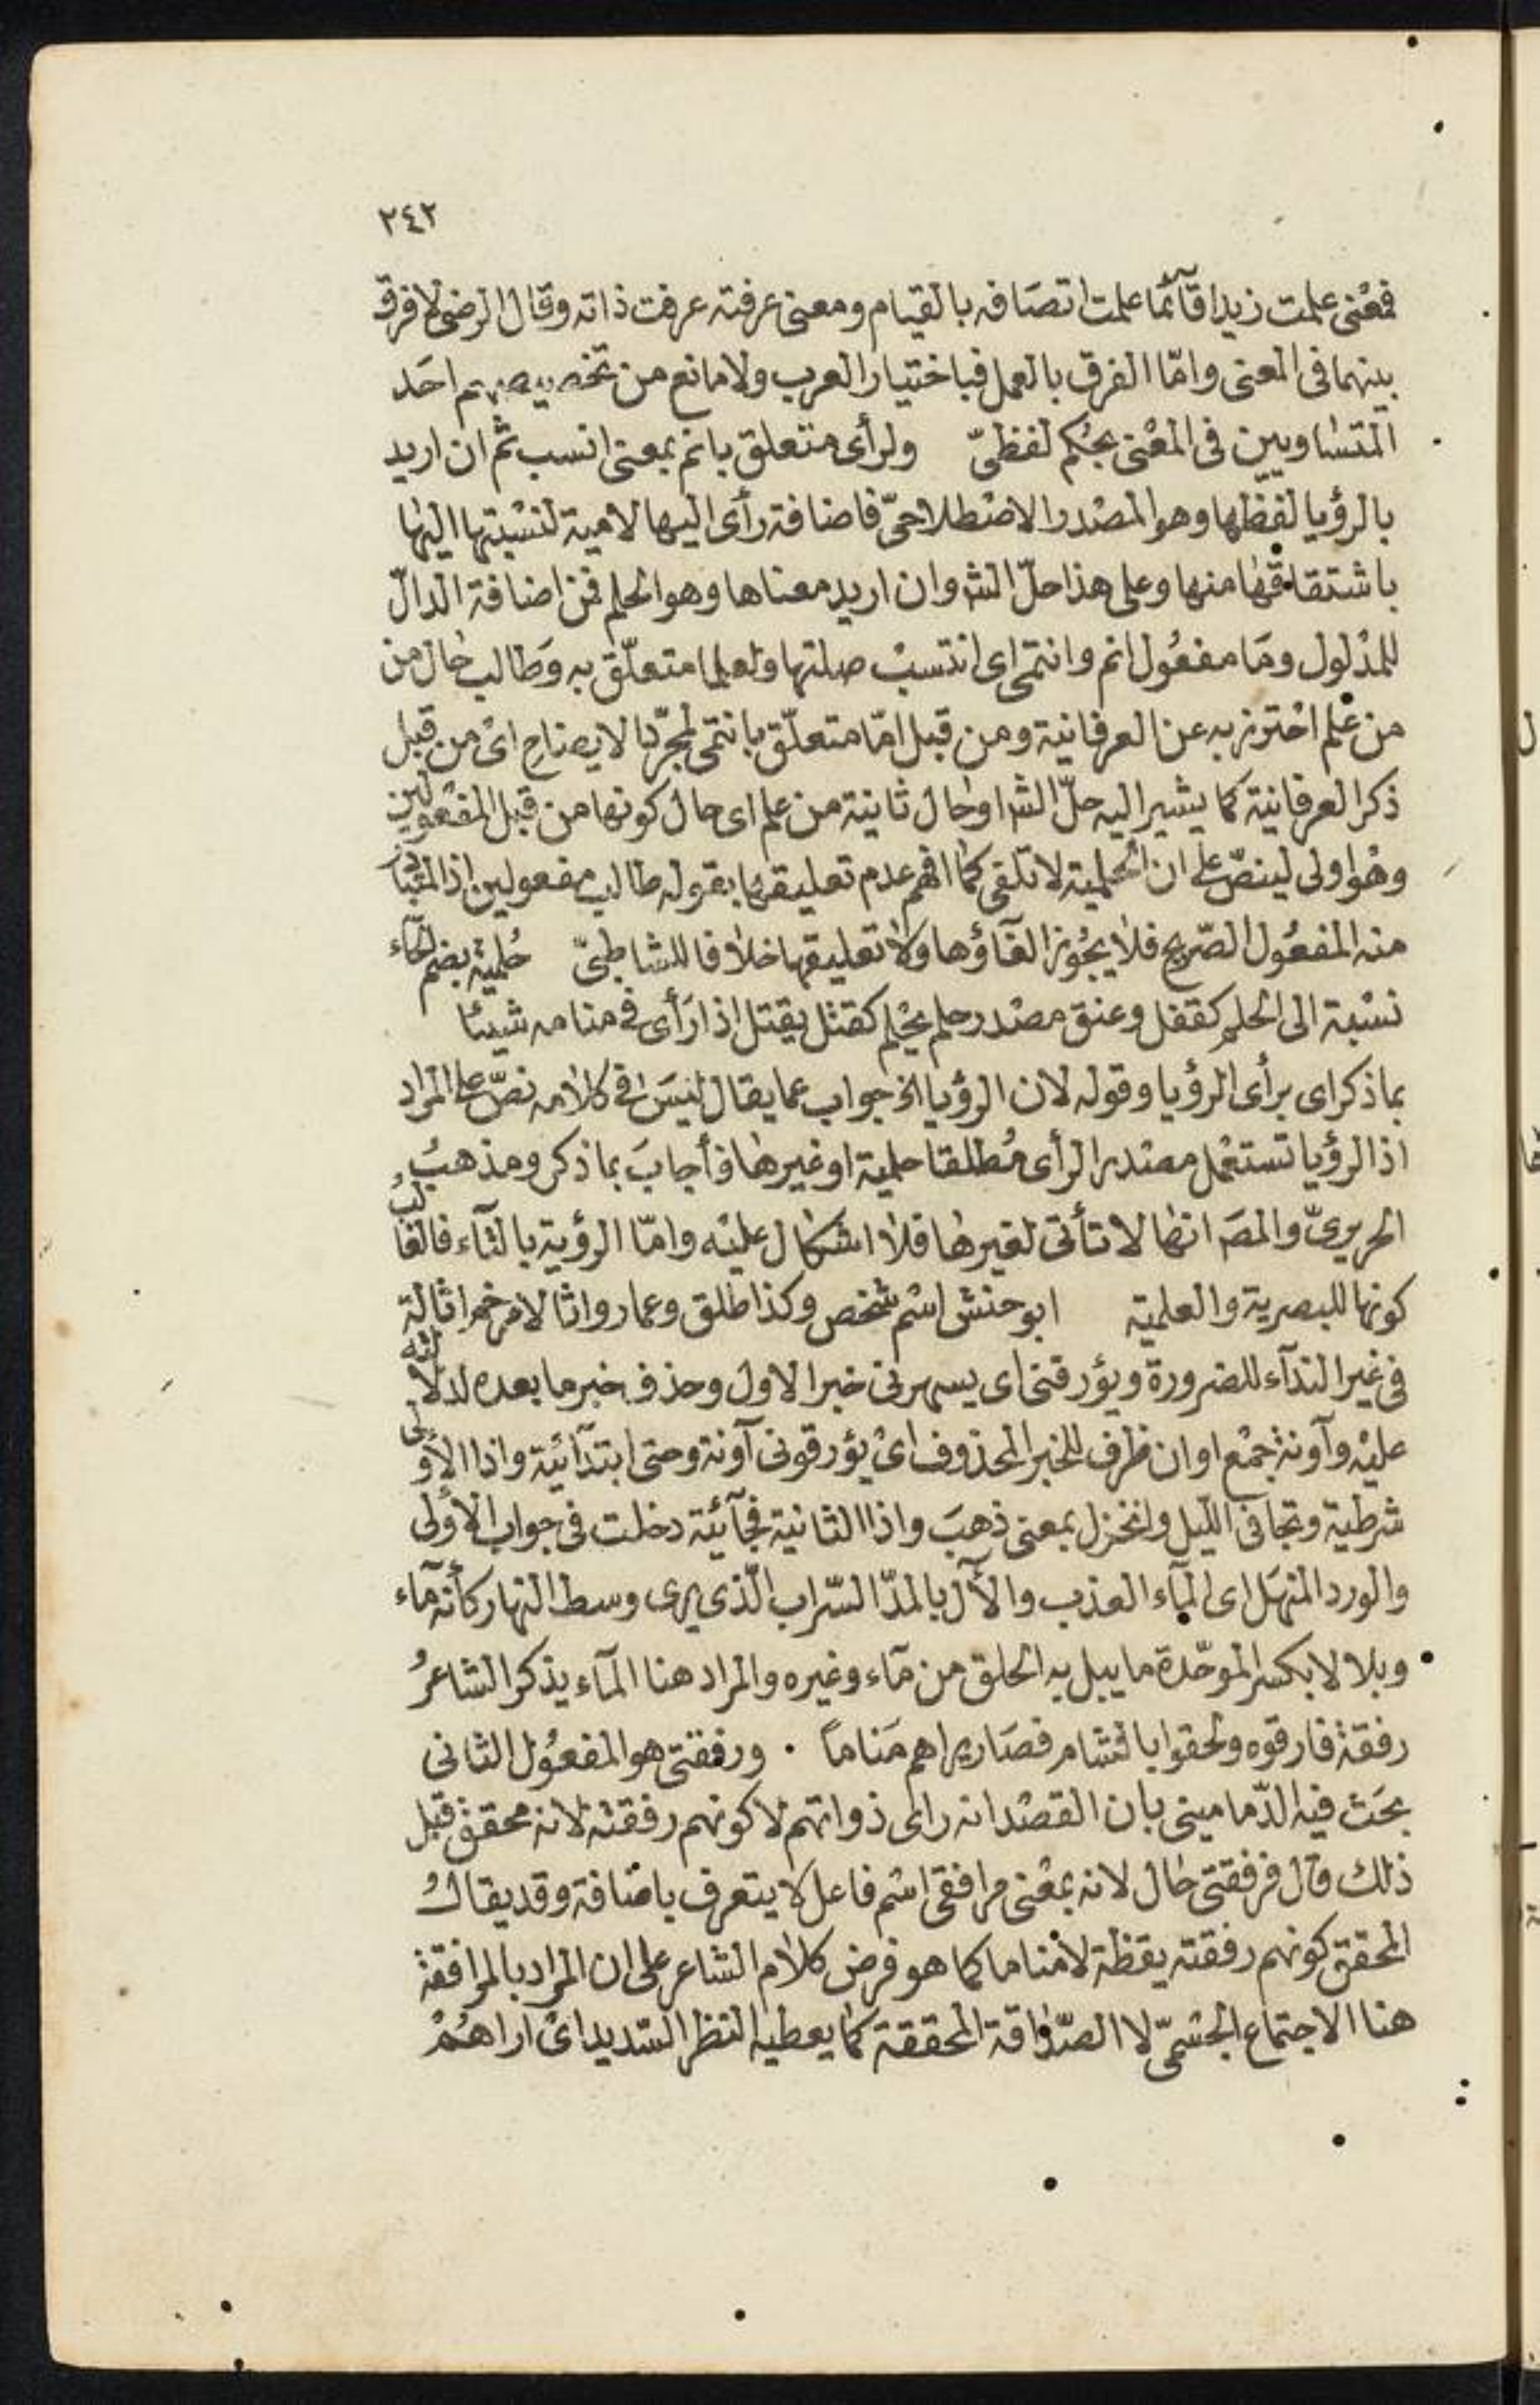 ٢٤٢
فمعنى علمت زيدا قآئما علمت اتصافه بالقيام ومعنى عرفته عرفت ذاته وقال الرضى لا فرق
بينهما فى المعنى وامّا الفرق بالعمل فباختيار العرب ولا مانع من تخصيصهم احد
المتساويين فى المعنى بحكم لفظىّ ولرأى متعلق بانم بمعنى انسب ثم ان اريد
بالرؤيا لفظها وهو المصدر الاصطلاحىّ فاضافة رأى اليها لامية لنسبتها اليها
باشتقاقها منها وعلى هذا حلّ الشـ وان اريد معناها وهو الحلم فمن اضافة الدالّ
للمدلول وما مفعول انم وانتمى اى انتسب صلتها ولعلما متعلّق به وطالب حال من
من علم احترز به عن العرفانية ومن قبل امّا متعلّق بانتمى لمجرّد الايضاح اى من قبل
ذكر العرفانية كما يشير اليه حلّ الشـ او حال ثانية من علم اى حال كونها من قبل المفعولين
وهو اولى لينصّ على ان الحلمية لا تلغى كما افهم عدم تعليقها بقوله طالب مفعولين اذ المتبادر
منه المفعول الصّريح فلا يجوز الغآؤها ولا تعليقها خلافا للشاطبىّ حُلمية بضم الحآء
نسبة الى الحلم كقفل وعنق مصدر حلم يحلم كقتل يقتل اذا رَأى فى منامه شيئا
بما ذكر اى برأى الرؤيا وقوله لان الرؤيا الخ جواب عما يقال ليس فى كلامه نصّ على المراد
اذ الرؤيا تستعمل مصدرا لرأى مُطلقا حلمية او غيرها فأجابَ بما ذكر ومذهبُ
الحريرىّ والمصَـ انها لا تأتى لغيرها فلا اشكال عليه وامّا الرؤية بالتآء فالغالبُ
كونها للبصرية والعلمية ابو حنش اسم شخص وكذا طلق وعمار واثالا مرخم اثالة
فى غير الندآء للضرورة ويؤرقنى اى يسهرنى خبر الاول وحذف خبر ما بعده لدلالته
عليه وآونة جمع اوان ظرف للخبر المحذوف اى يؤرقونى آونة وحتى ابتدآئية واذا الاولى
شرطية وتجافى الليل وانخزل بمعنى ذهبَ واذا الثانية فجآئية دخلت فى جواب الاولى
والورد المنهَل اى المآء العذب والآل بالمدّ السّراب الّذى يرى وسط النهار كأنه مآء
وبلالا بكسر الموحّدة ما يبل به الحلق من مآء وغيره والمراد هنا المآء يذكر الشاعرُ
رفقة فارقوه ولحقوا بالشام فصار يراهم مَناماً . ورفقتى هو المفعول الثانى
بحَث فيه الدّمامينى بان القصد انه راى ذواتهم لا كونهم رفقته لانه محقق قبل
ذلك قال فرفقتى حال لانه بمعنى مرافقى اسم فاعل لا يتعرف باضافة وقد يقالُ
المحقق كونهم رفقته يقظة لا مناما كما هو فرض كلام الشاعر على ان المراد بالمرافقة
هنا الاجتماع الجسمىّ لا الصّداقة المحققة كما يعطيه النظر السّديد اى اراهُمْ